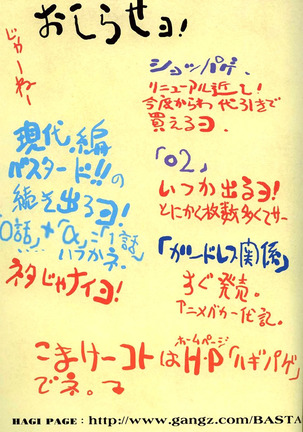 おしらせヨ!
じゃーねー
ショッパゲ.
リニューアル近し!
今度からわ代引きで
買えるヨ.
現代編
バスタード!!の
続き出るヨ!
「0話」+「α」=「1話」
いつかネ.
ネタじゃナイヨ!
「02」
いつか出るヨ!
とにかく枚数多くてサー
「ガードレス関係」
すぐ発売。
アニメバカ一代記。
こまけーコトはH・P「ハギパゲ」
ホームページ
でネ。
HAGI PAGE : http://www.gangz.com/BASTA